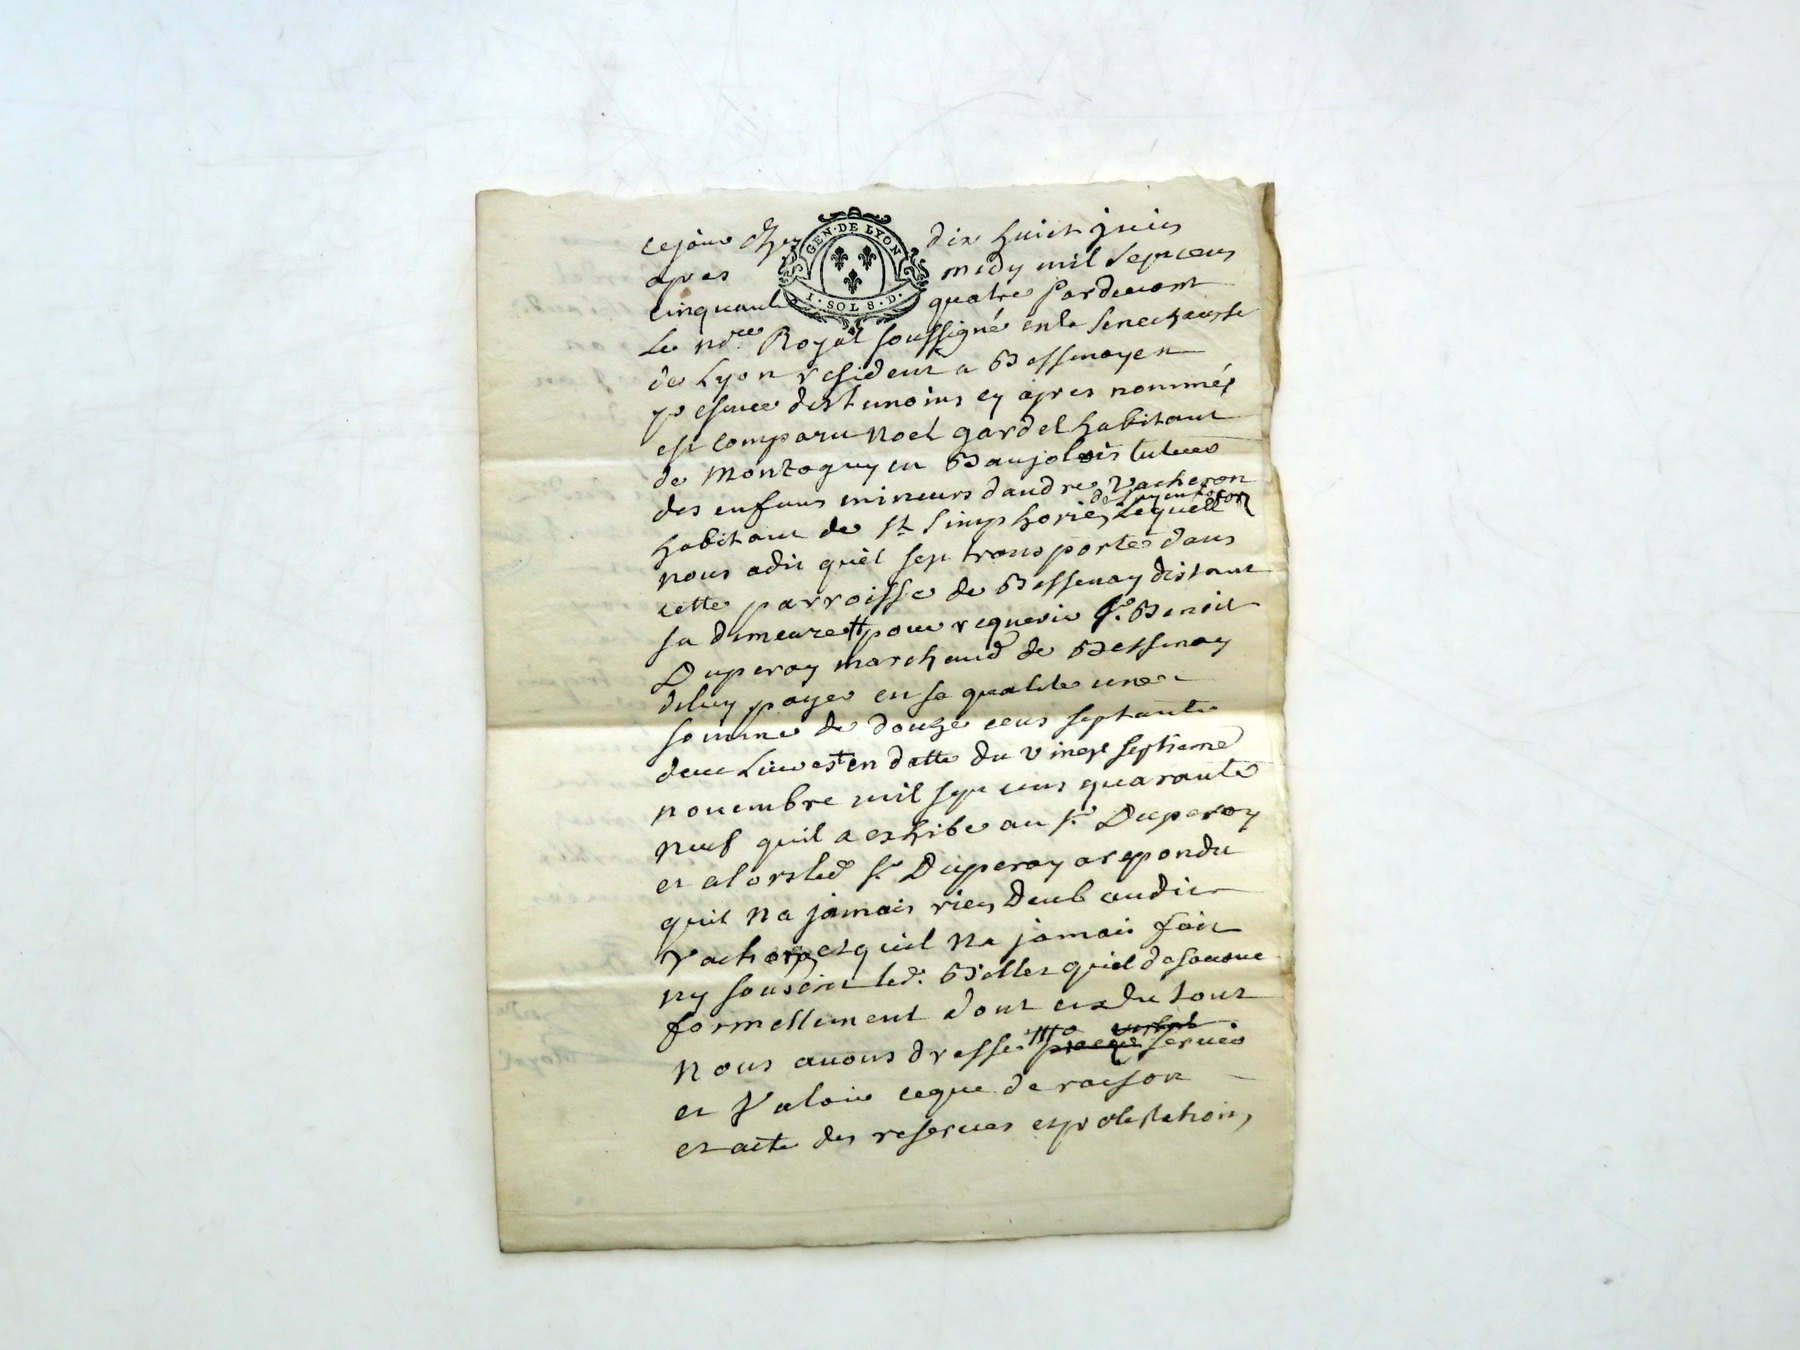 GEN·DE LYON
I·SOL 8·D·
ce jour dix huict juin
apres midy mil sept cens
cinquante quatre pardevant
Le no.re Royal soussigné en la senechaussé
de Lyon residant a Bessenay en
presence des temoins cy apres nommés
est comparu noel gardel habitant
de Montagny en Baujolois tuteur
des enfans mineurs d'andre Vacheron
habitant de st simphorien Lequel
nous a dit quil sest transporté dans
cette parroisse de Bessenay distant
sa demeure pour requerir sr. Benoit
Duperay marchand de Bessenay
de luy payer en sa qualité une
somme de douze cens septante
deux Livres en datte du vingt septieme
novembre mil sept cens quarante
neuf quil a exhibé au sr. Duperoy
et alors led sr Duperoy a repondu
quil Na jamais rien deub audit
Vacheron et quil Na jamais fait
ny souscrit led. Billet quil desavoue
formellement dont et du tout
Nous avons dressé servir
et Valoir ce que de raison
et acte des reserves et protestations,